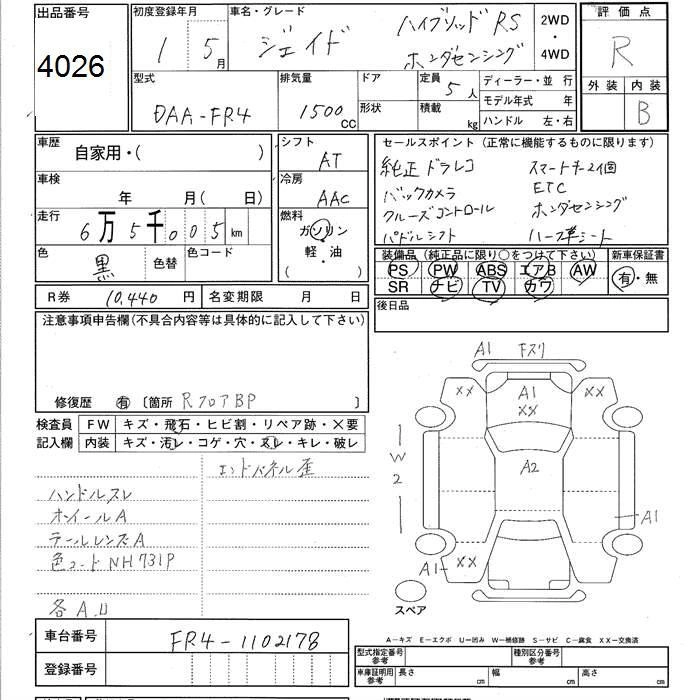 出品番号
4026
初度登録年月
1 5月
車名・グレード
ジェイド
ハイブリッド RS
ホンダセンシング
2WD
・
4WD
評価点
R
外装 内装
B
型式
DAA-FR4
排気量
1500 CC
ドア
形状
定員 5人
積載 kg
ディーラー・並行
モデル年式 年
ハンドル 左・右
車歴
自家用・( )
車検
年 月( 日)
走行
6万5千005 km
色
黒
色替
色コード
シフト
AT
冷房
AAC
燃料
ガソリン
軽・油
( ・ )
セールスポイント(正常に機能するものに限ります)
純正ドラレコ スマートキー2個
バックカメラ ETC
クルーズコントロール ホンダセンシング
パドルシフト ハーフ革シート
装備品(純正品に限り○をつけて下さい) 新車保証書
PS PW ABS エアB AW
SR ナビ TV カワ
有・無
後日品
R券 10,440円 名変期限 月 日
注意事項申告欄(不具合内容等は具体的に記入して下さい)
修復歴 有 〔箇所 RフロアBP 〕
検査員 FW キズ・飛石・ヒビ割・リペア跡・×要
記入欄 内装 キズ・汚レ・コゲ・穴・スレ・キレ・破レ
エンドパネル歪
ハンドルスレ
ホイールA
テールレンズA
色コード NH731P
各A.U
A1 Fスリ
XX A1 XX
XX
W
2
A2
A1
A1 XX
スペア
A-キズ E-エクボ U-凹み W-補修跡 S-サビ C-腐食 XX-交換済
車台番号
FR4-1102178
登録番号
型式指定番号
参考
種別区分番号
参考
車庫証明用
参考
長さ cm 幅 cm 高さ cm